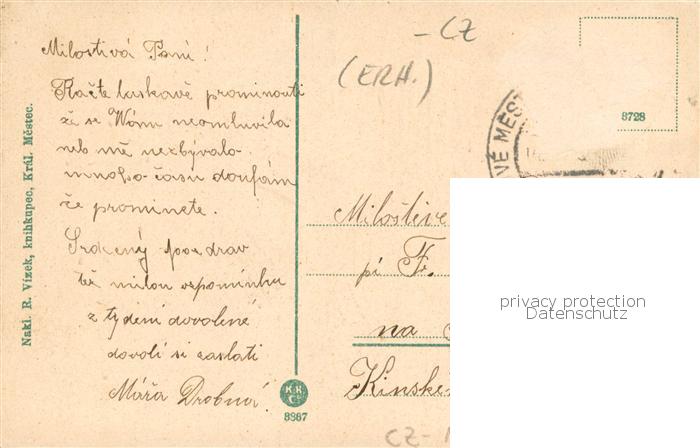 Milostivá Paní!
Račte laskavě prominouti
že se Vám neomluvila
neb mě nezbývalo
mnoho času doufám
že prominete.
Srdečný pozdrav
též milou vzpomínku
z týdení dovolené
dovolí si zaslati
Máňa Drobná!
Nakl. R. Vízek, knihkupec, Král. Městec.
K.K.
8387
- CZ
(ERH.)
8728
VÉ MĚST
Milostive
pí Fr.
na
Kinské
CZ-
privacy protection
Datenschutz